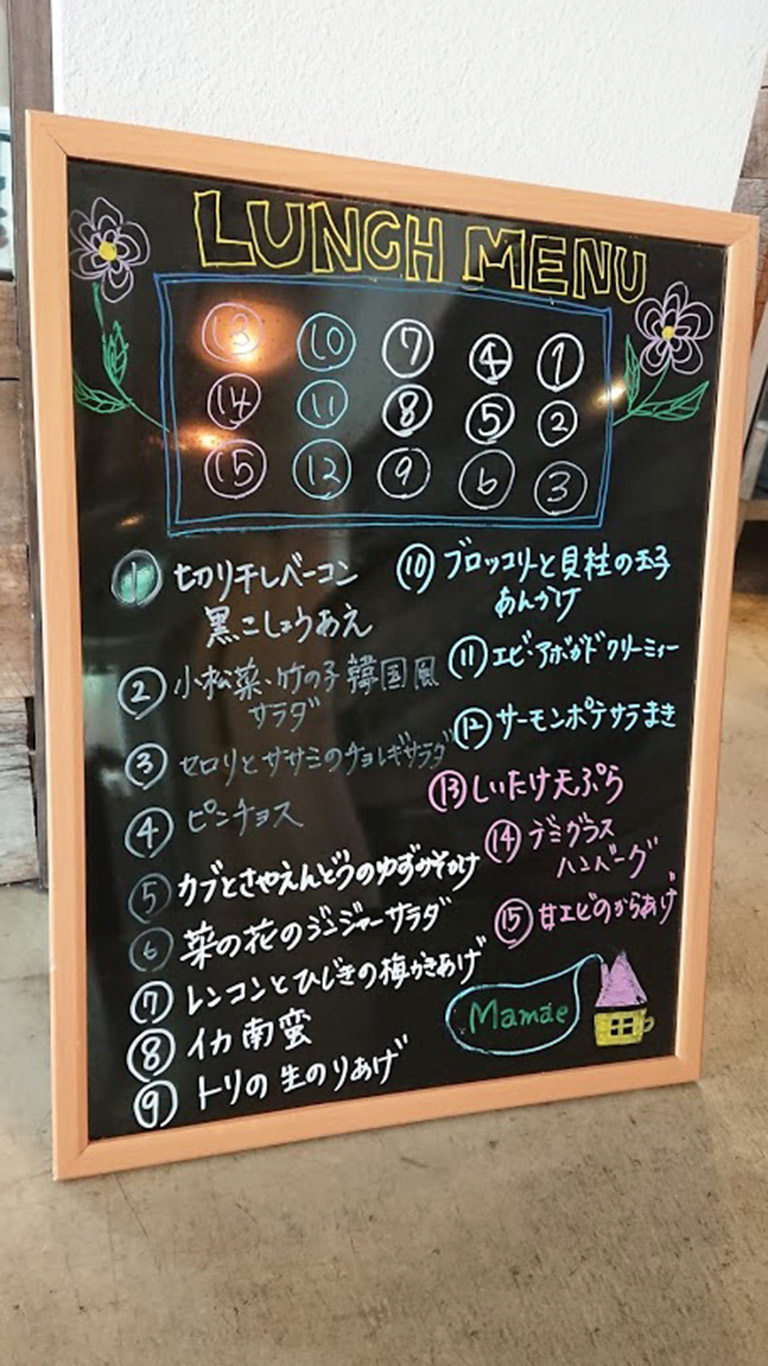 LUNCH MENU
⑬ ⑩ ⑦ ④ ①
⑭ ⑪ ⑧ ⑤ ②
⑮ ⑫ ⑨ ⑥ ③
① 切り干しベーコン
黒こしょうあえ
② 小松菜、竹の子韓国風
サラダ
③ セロリとササミのチョレギサラダ
④ ピンチョス
⑤ カブとさやえんどうのゆずみそかけ
⑥ 菜の花のジンジャーサラダ
⑦ レンコンとひじきの梅かきあげ
⑧ イカ南蛮
⑨ トリの生のりあげ
⑩ ブロッコリーと貝柱の玉子
あんかけ
⑪ エビ・アボガドクリーミィー
⑫ サーモンポテサラまき
⑬ しいたけ天ぷら
⑭ デミグラス
ハンバーグ
⑮ 甘エビのからあげ
Mamáe